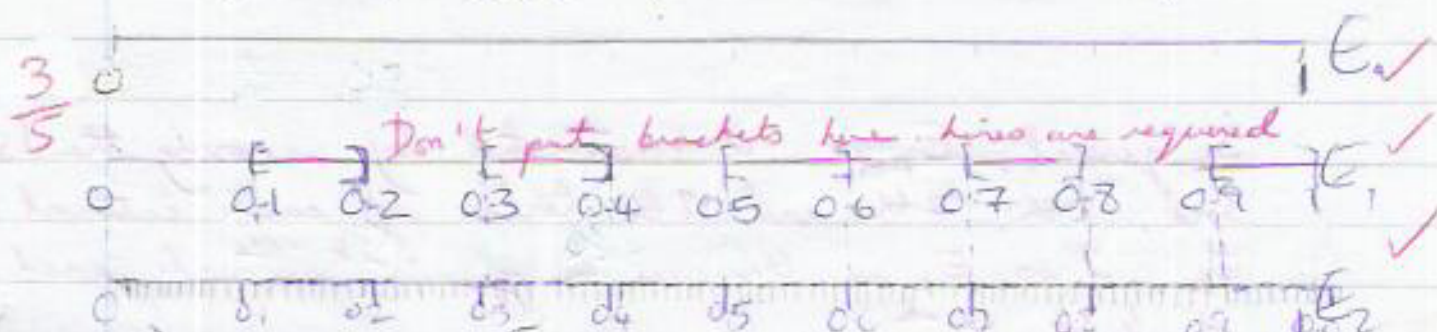 0 E₀ ✓
3/5
Don't put brackets here. Lines are required ✓
0 [0.1 0.2] [0.3 0.4] [0.5 0.6] [0.7 0.8] [0.9 1] E₁
✓
0 0.1 0.2 0.3 0.4 0.5 0.6 0.7 0.8 0.9 E₂